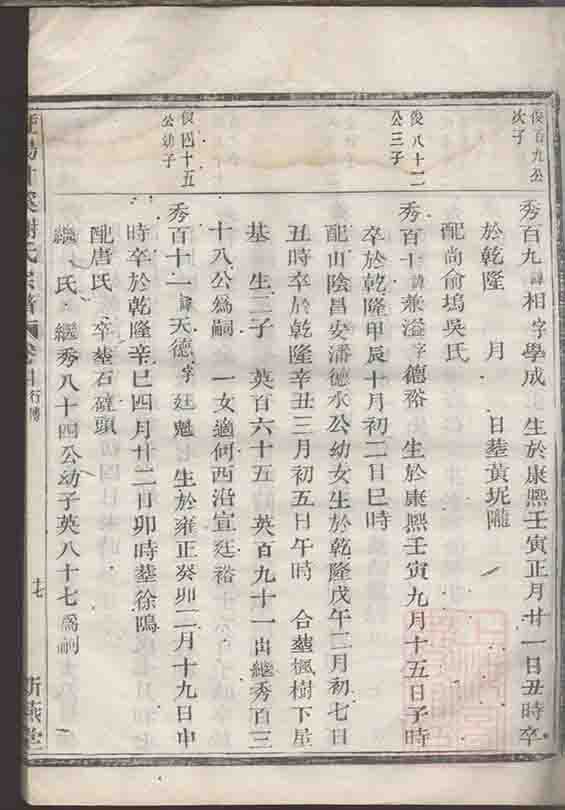 俊百九公
次子
秀百九諱相字學成 生於康熙壬寅正月廿一日丑時卒
於乾隆 月 日塟黃坭隴
配尚俞塢吳氏
俊八十二
公三子
秀百十諱兼溢字德裕 生於康熙壬寅九月十五日子時
卒於乾隆甲辰十月初二日巳時
配山陰昌安潘德水公幼女生於乾隆戊午二月初七日
丑時卒於乾隆辛丑三月初五日午時 合塟楓樹下
基 生二子 英百六十五 英百九十一出繼秀百三
十八公為嗣 一女適何西沿宣廷裕
俊四十五
公幼子
秀百十一諱天德字廷魁 生於雍正癸卯二月十九日申
時卒於乾隆辛巳四月廿二日卯時塟徐鴎
配唐氏 卒塟石礶頭
繼 氏 繼秀八十四公幼子英八十七為嗣
謝氏宗譜 行傳
十七